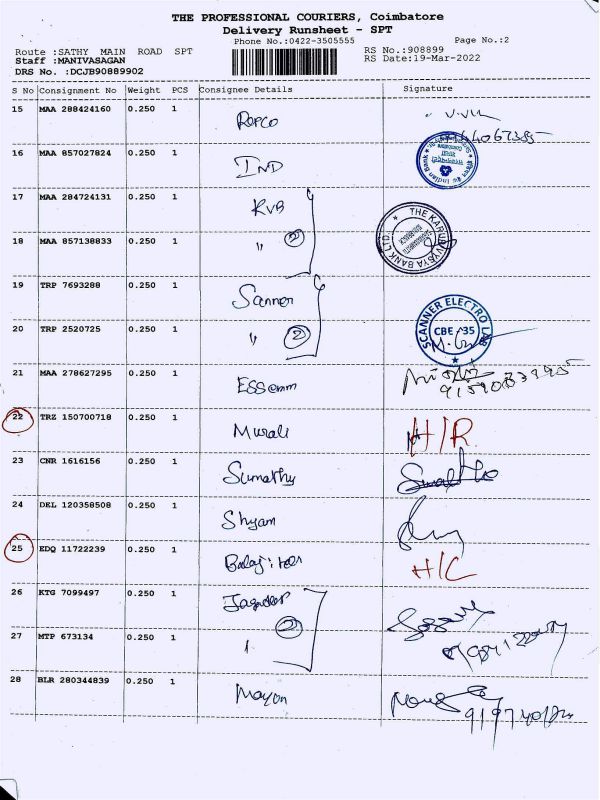 THE PROFESSIONAL COURIERS, Coimbatore
Delivery Runsheet - SPT
Phone No.:0422-3505555 Page No.:2
Route :SATHY MAIN ROAD SPT RS No.:908899
Staff :MANIVASAGAN RS Date:19-Mar-2022
DRS No. :DCJB90889902
S No Consignment No Weight PCS Consignee Details Signature
15 MAA 288424160 0.250 1 Repco
16 MAA 857027824 0.250 1 IND
17 MAA 284724131 0.250 1 KVB
THE KARUR VYSYA BANK LTD.
18 MAA 857138833 0.250 1 " 2
19 TRP 7693288 0.250 1 Scanner
SCANNER ELECTRO LAB
CBE - 35
20 TRP 2520725 0.250 1 " 2
21 MAA 278627295 0.250 1 ESSemm
22 TRZ 150700718 0.250 1 Murali H/R
23 CNR 1616156 0.250 1 Sumathy
24 DEL 120358508 0.250 1 Shyam
25 EDQ 11722239 0.250 1 H/C
26 KTG 7099497 0.250 1 Jagadeep
27 MTP 673134 0.250 1 " 2
28 BLR 280344839 0.250 1 Mayon